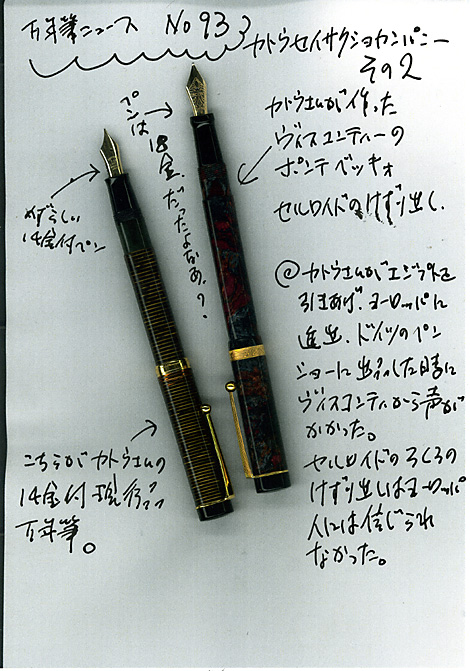 万年筆ニュース No 933
カトウセイサクショカンパニー
その2
ペンは18金だったよなあ?
カトウさんが作った
ヴィスコンティーの
ポンテベッキオ
セルロイドのけずり出し
めずらしい
14金付ペン
@カトウさんがエジプトを
引きあげ、ヨーロッパに
進出、ドイツのペン
ショーに出品した時に
ヴィスコンティから声が
かかった。
セルロイドのろくろの
けずり出しはヨーロッパ
人には信じられ
なかった。
こちらがカトウさんの
14金付現行
万年筆。